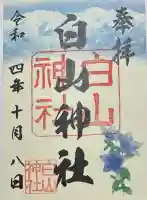 奉拝
白山神社
白山
神社
令和四年十月八日
白山
神社